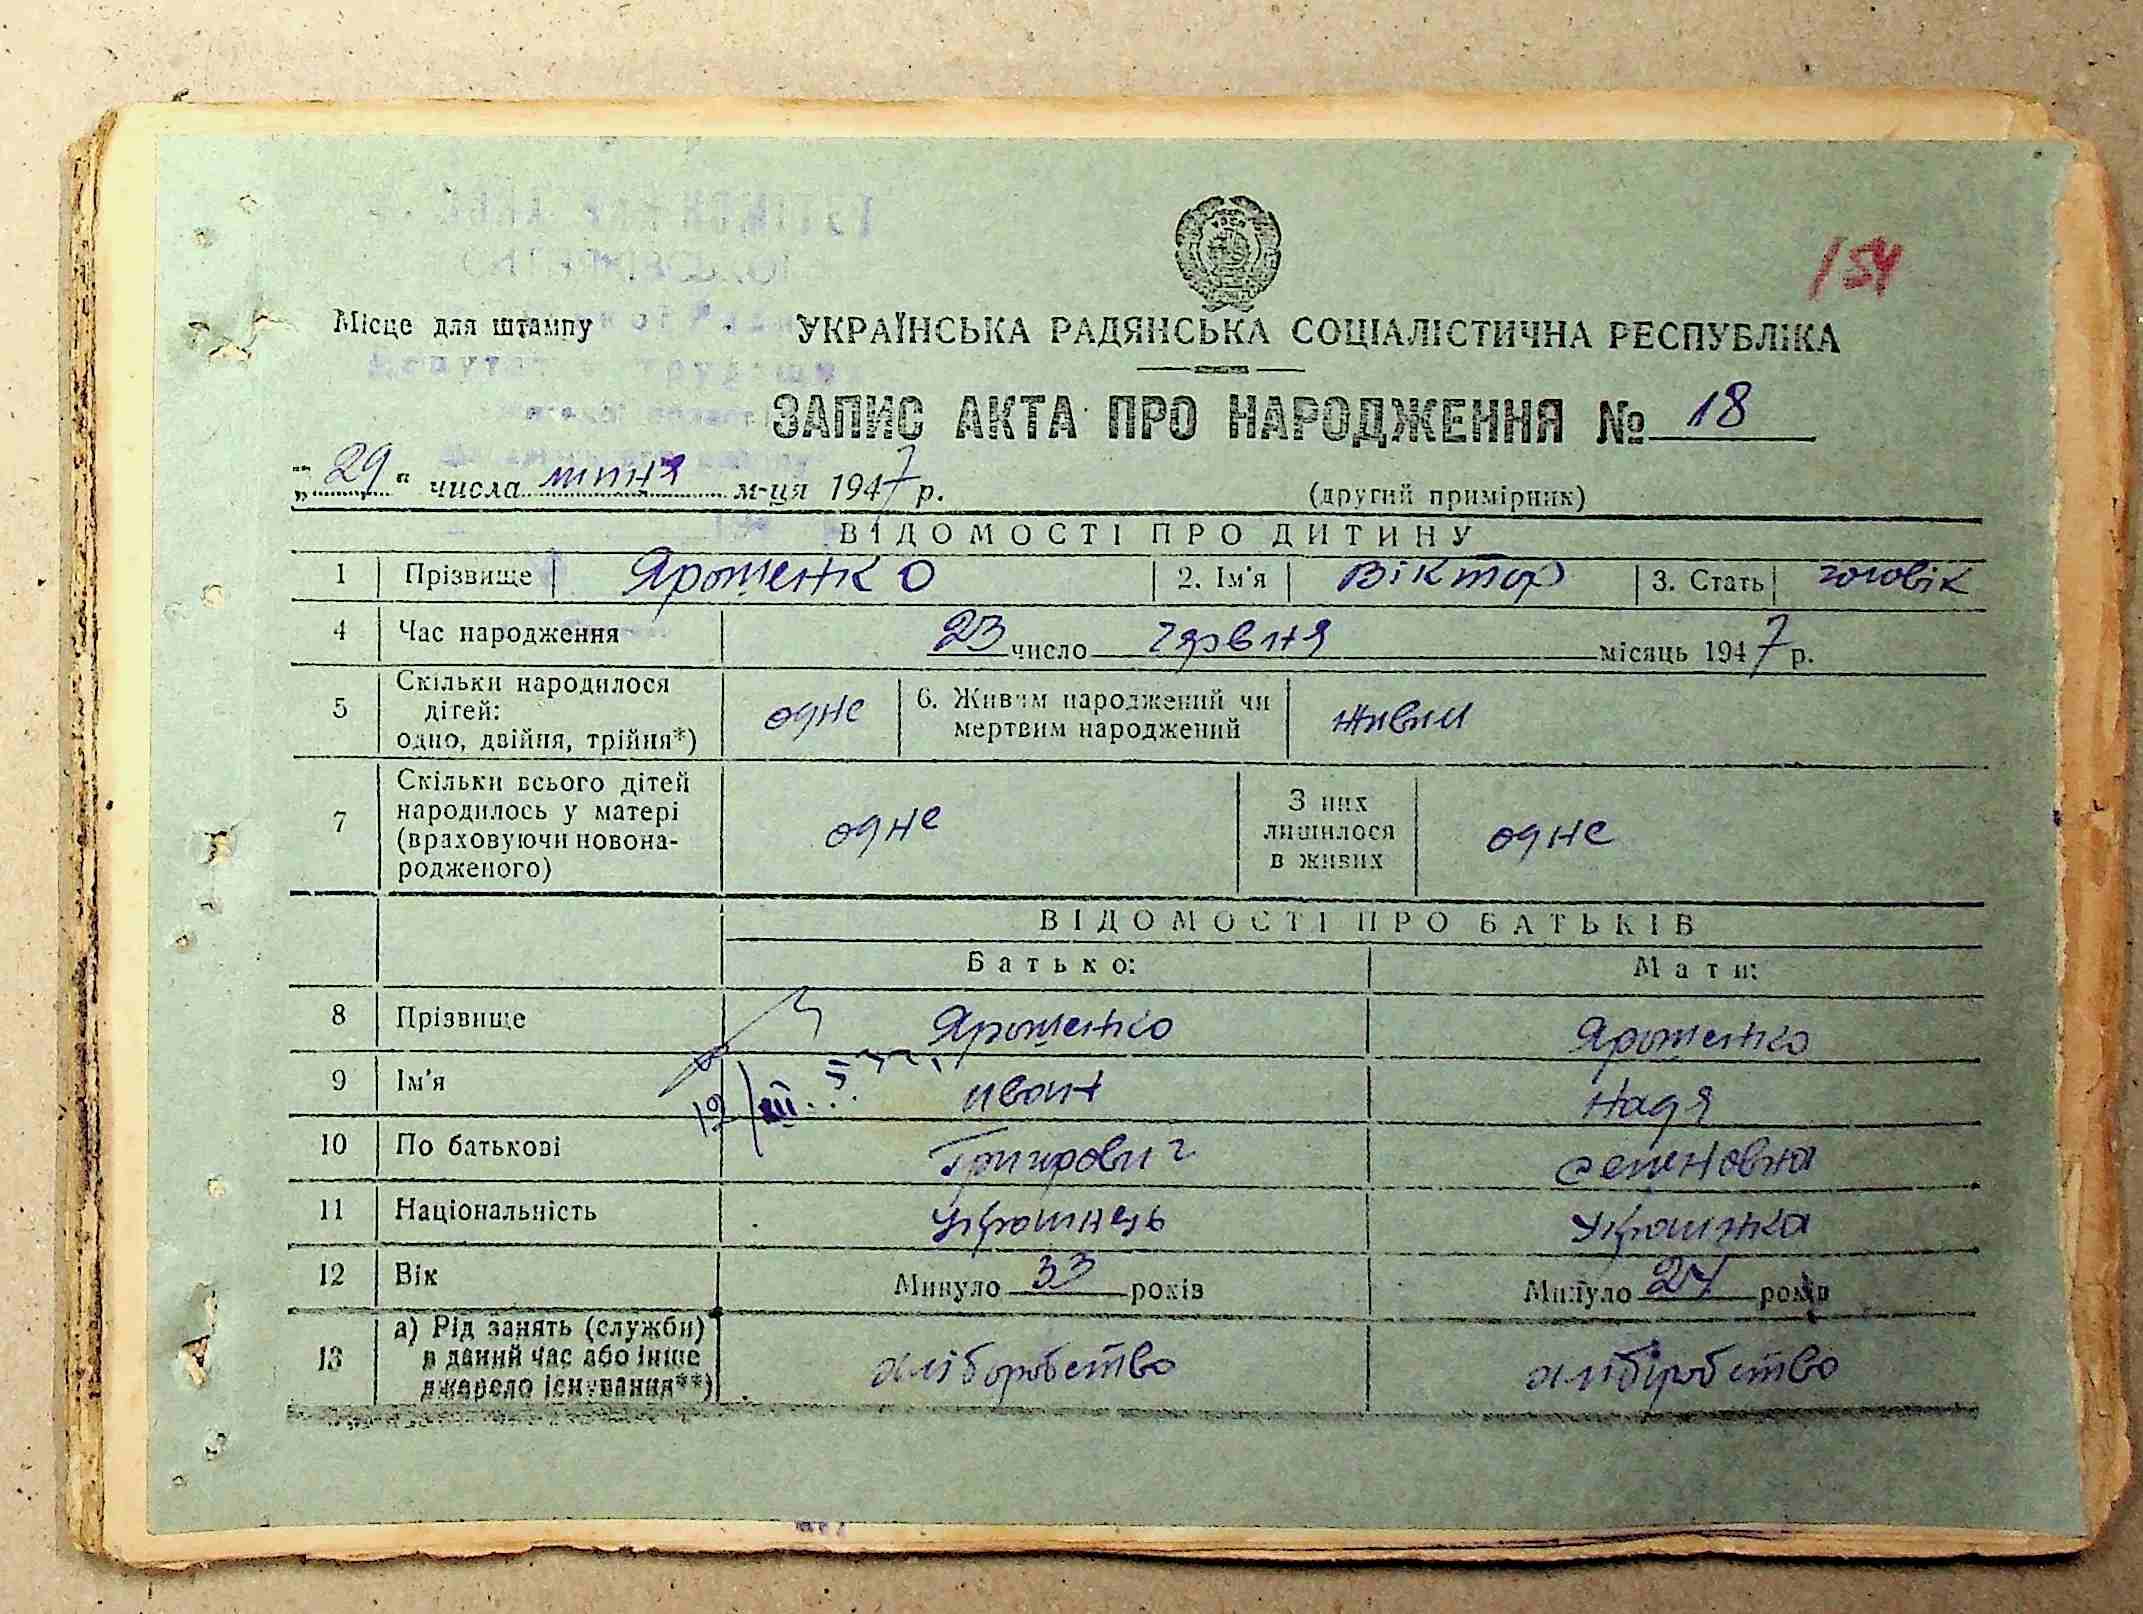 154
Місце для штампу
УКРАЇНСЬКА РАДЯНСЬКА СОЦІАЛІСТИЧНА РЕСПУБЛІКА
ЗАПИС АКТА ПРО НАРОДЖЕННЯ № 18
"29" числа липня м-ця 1947 р.
(другий примірник)
ВІДОМОСТІ ПРО ДИТИНУ
1 Прізвище Ярошенко 2. Ім'я Віктор 3. Стать чоловік
4 Час народження 23 число червня місяць 1947 р.
5 Скільки народилося дітей: одно, двійня, трійня*) одне 6. Живим народжений чи мертвим народжений живим
7 Скільки всього дітей народилось у матері (враховуючи новонародженого) одне З них лишилося в живих одне
ВІДОМОСТІ ПРО БАТЬКІВ
Батько: Мати:
8 Прізвище Ярошенко Ярошенко
9 Ім'я иван Надя
10 По батькові Григорович Семеновна
11 Національність Українець Українка
12 Вік Минуло 33 років Минуло 24 років
13 а) Рід занять (служби) в даний час або інше джерело існування**) хліборобство хліборобство